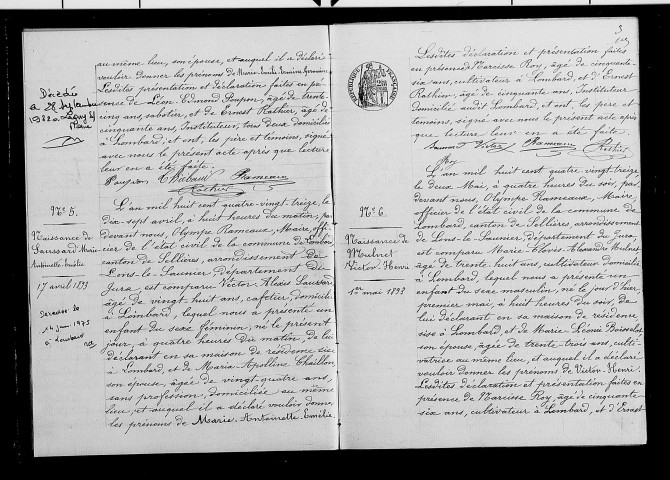 au même lieu, son épouse, et auquel il a déclaré
vouloir donner les prénoms de Marie
Lesdites présentation et déclaration faites en pré-
sence de Léon Edmond Poupon, âgé de
cinq ans, sabotier, et de Ernest Rathier, âgé de
cinquante ans, Instituteur, tous deux domiciliés
à Lombard; et ont, les père et témoins, signé
avec nous le présent acte après que lecture
leur en a été faite.
Poupon Thiébaud Rameaux
Rathier
Décédée
N° 5.
Naissance de
Saussard Marie
Antoinette Emélie
17 avril 1893
Décédée le
14 juin 1975
L'an mil huit cent quatre-vingt-treize, le
dix-sept avril, à huit heures du matin, par
devant nous, Olympe Rameaux, Maire, offi-
cier de l'état civil de la commune de Lombard,
canton de Sellières, arrondissement de
Lons-le-Saunier, département du
Jura, est comparu Victor Alexis Saussard,
âgé de vingt huit ans, cafetier, domicilié
à Lombard, lequel nous a présenté un
enfant du sexe féminin, né le présent
jour, à quatre heures du matin, de lui
déclarant en sa maison de résidence sise
à Lombard, et de Maria Apolline Chaillon,
son épouse, âgée de vingt-quatre ans,
sans profession, domiciliée au même
lieu, et auquel il a déclaré vouloir donner
les prénoms de Marie Antoinette Emélie.
3
Lesdites déclaration et présentation faites
en présence de Narcisse Roy, âgé de cinquante-
six ans, cultivateur à Lombard, et d'Ernest
Rathier, âgé de cinquante ans, Instituteur
domicilié audit Lombard, et ont, les père et
témoins, signé avec nous le présent acte
après que lecture leur en a été faite.
Saussard Victor Rameaux Rathier
Roy
RÉPUBLIQUE FRANÇAISE
N° 6.
Naissance de
Mulnet
Victor Henri
1er mai 1893
L'an mil huit cent quatre-vingt-treize
le deux Mai, à quatre heures du soir, par
devant nous, Olympe Rameaux, Maire,
officier de l'état civil de la commune de
Lombard, canton de Sellières, arrondissement
de Lons-le-Saunier, département du Jura,
est comparu Marie Eloi Alexandre Mulnet
âgé de trente huit ans, cultivateur domicilié
à Lombard, lequel nous a présenté un
enfant du sexe masculin, né le jour d'hier
premier mai, à huit heures du soir, de
lui déclarant en sa maison de résidence
sise à Lombard, et de Marie Léonie Boisselot
son épouse, âgée de trente-trois ans, culti-
vatrice au même lieu, et auquel il a déclaré
vouloir donner les prénoms de Victor Henri.
Lesdites déclaration et présentation faites en
présence de Narcisse Roy, âgé de cinquante
six ans, cultivateur à Lombard, et d'Ernest